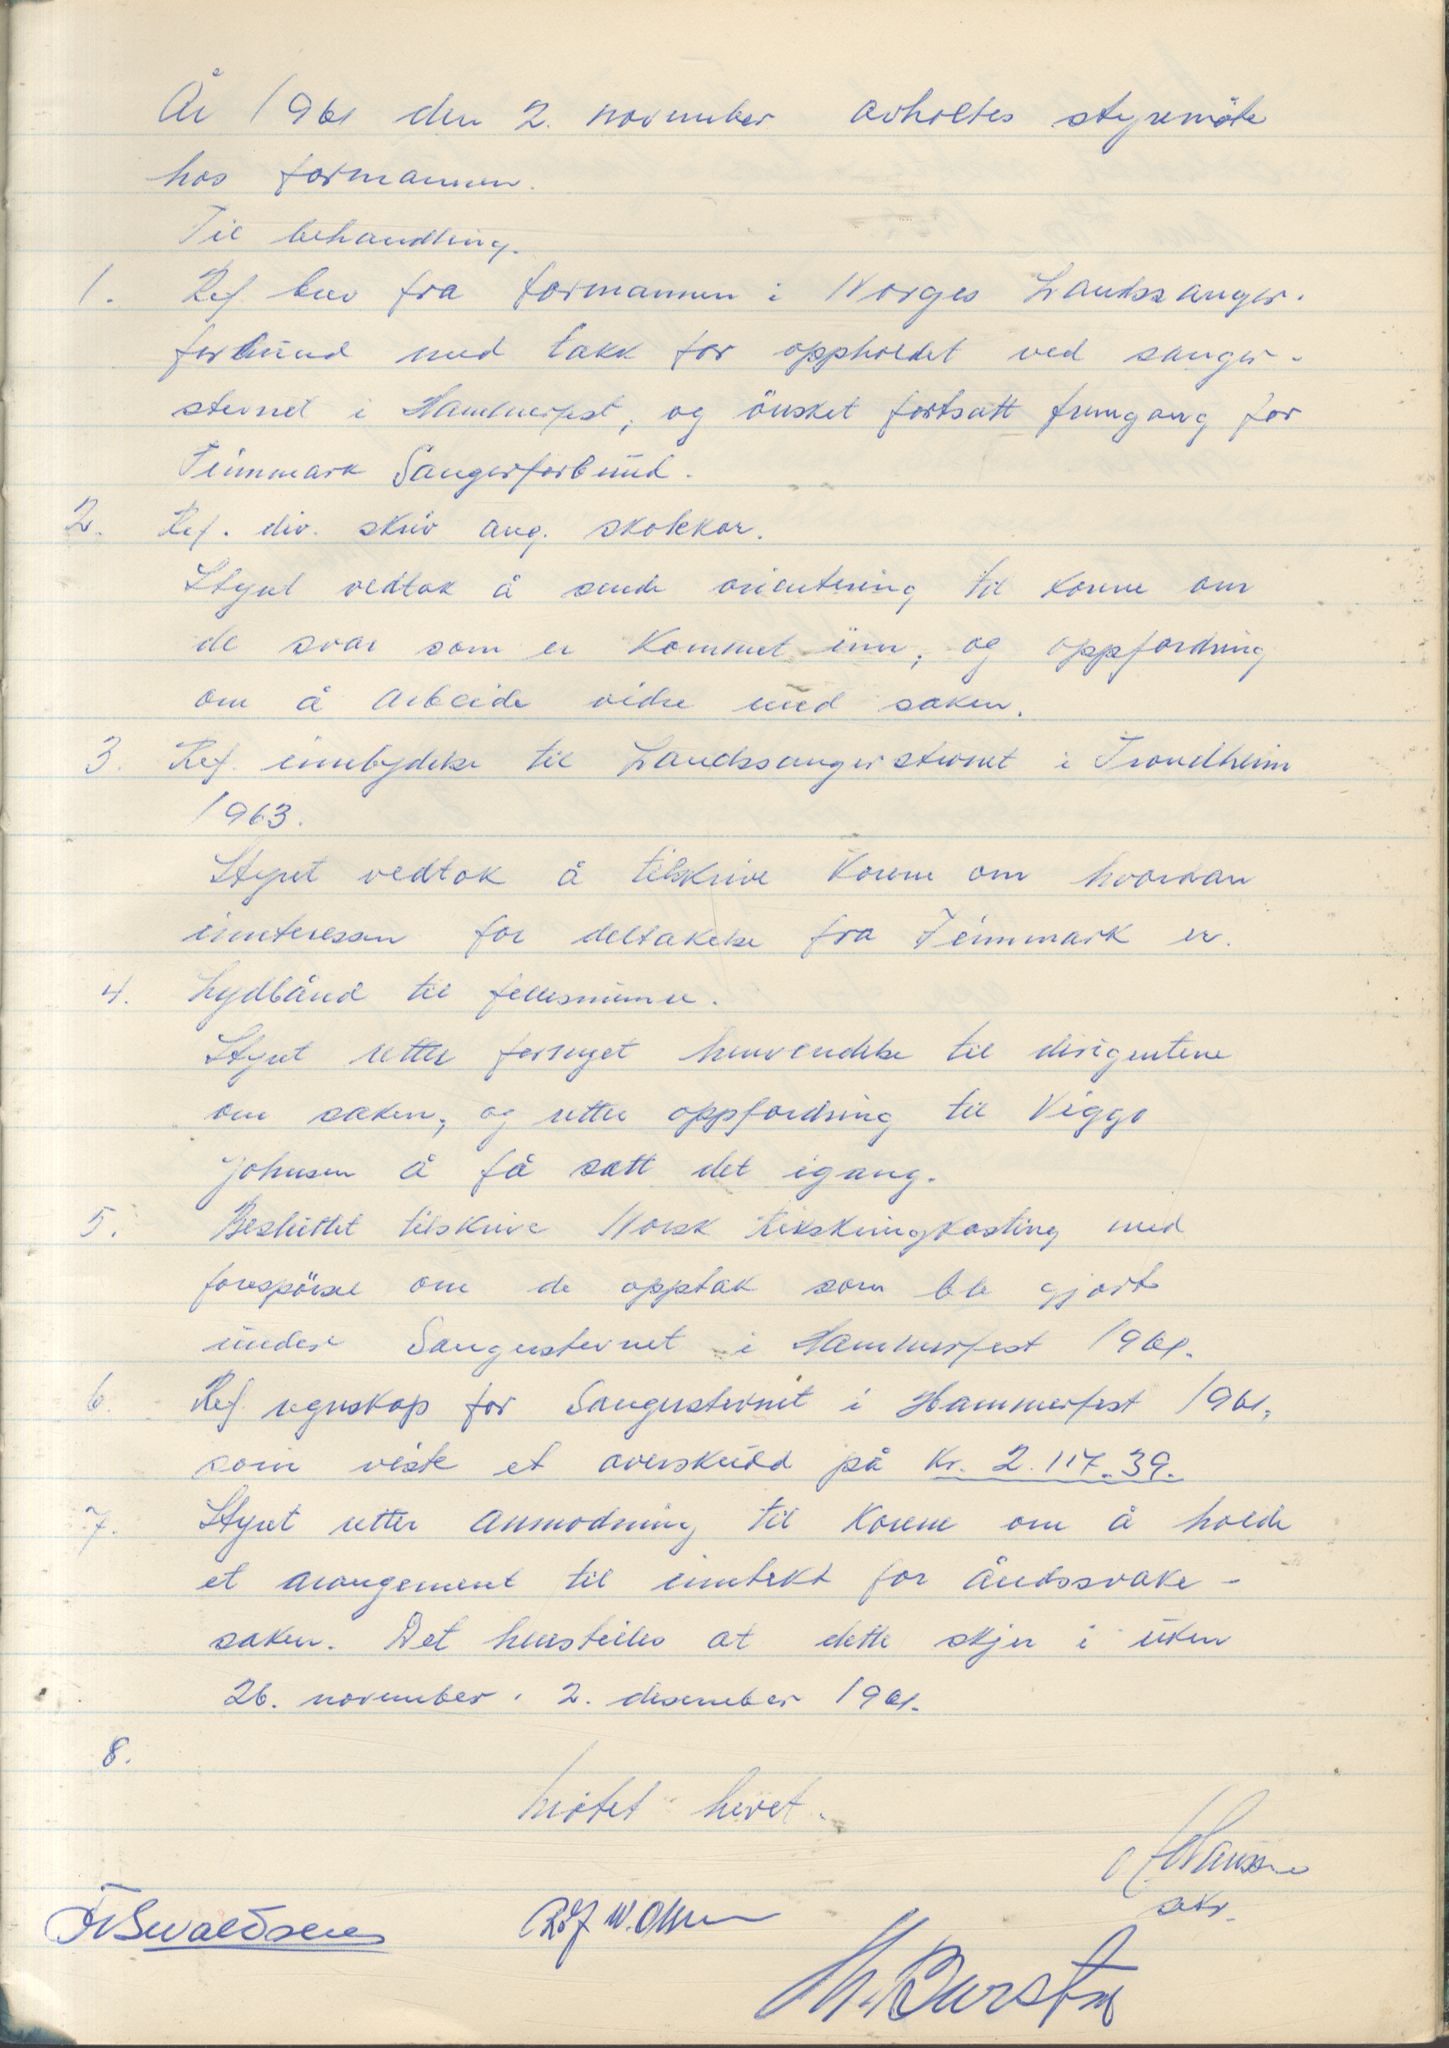 År 1961 den 2. november avholtes styremöte
hos formannen.
Til behandling.
1. Ref. brev fra formannen i Norges Landssanger-
forbund med takk for oppholdet ved sanger-
stevnet i Hammerfest, og önsket fortsatt fremgang for
Finnmark Sangerforbund.
2. Ref. div. skriv ang. skolekor.
Styret vedtok å sende orientering til korene om
de svar som er kommet inn, og oppfordring
om å arbeide videre med saken.
3. Ref. innbydelse til Landssangerstevnet i Trondheim
1963.
Styret vedtok å tilskrive korene om hvordan
innteressen for deltakelse fra Finnmark er.
4. Lydbånd til fellesnumre.
Styret retter fornyet henvendelse til dirigentene
om saken, og retter oppfordring til Viggo
Johnsen å få satt det igang.
5. Besluttet tilskrive Norsk Rikskringkasting med
forespörsel om de opptak som ble gjort
under Sangerstevnet i Hammerfest 1961.
6. Ref. regnskap for Sangerstevnet i Hammerfest 1961,
som viste et overskudd på Kr. 2.117.39.
7. Styret retter anmodning til korene om å holde
et arangement til inntekt for åndssvake-
saken. Det henstilles at dette skjer i uken
26. november - 2. desember 1961.
8.
Møtet hevet.
Hanssen
sekr.